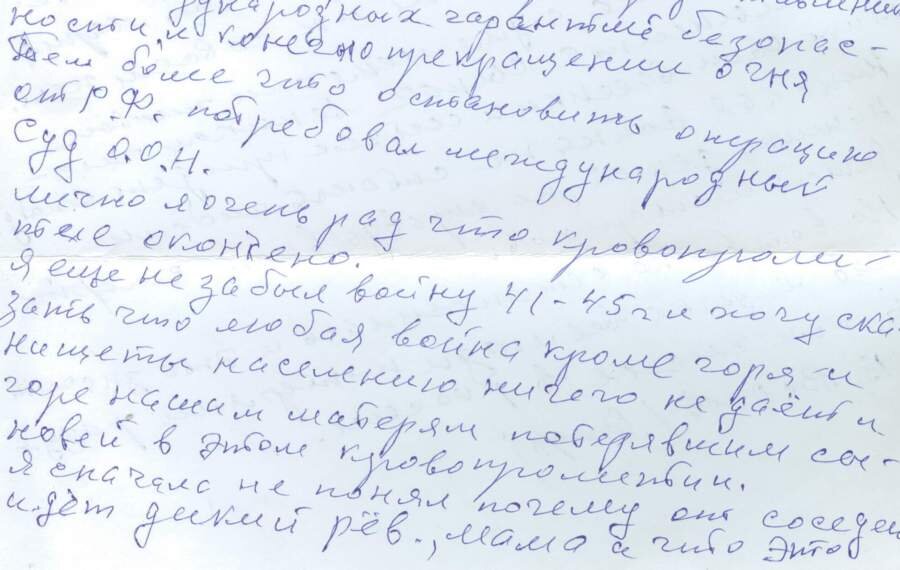 дународных гарантий безопас-
ности, и конечно прекращении огня
Тем боле что остановить операцию
от Р.Ф. потребовал международный
Суд О.О.Н.
лично я очень рад что кровопроли-
тие окончено.
Я еще не забыл войну 41-45 г и хочу ска-
зать что любая война кроме горя и
нищеты населению ничего не даёт и
горе нашим матерям потерявшим сы-
новей в этом кровопролитии.
Я сначала не понял почему от соседей
идёт дикий рёв., мама а что это